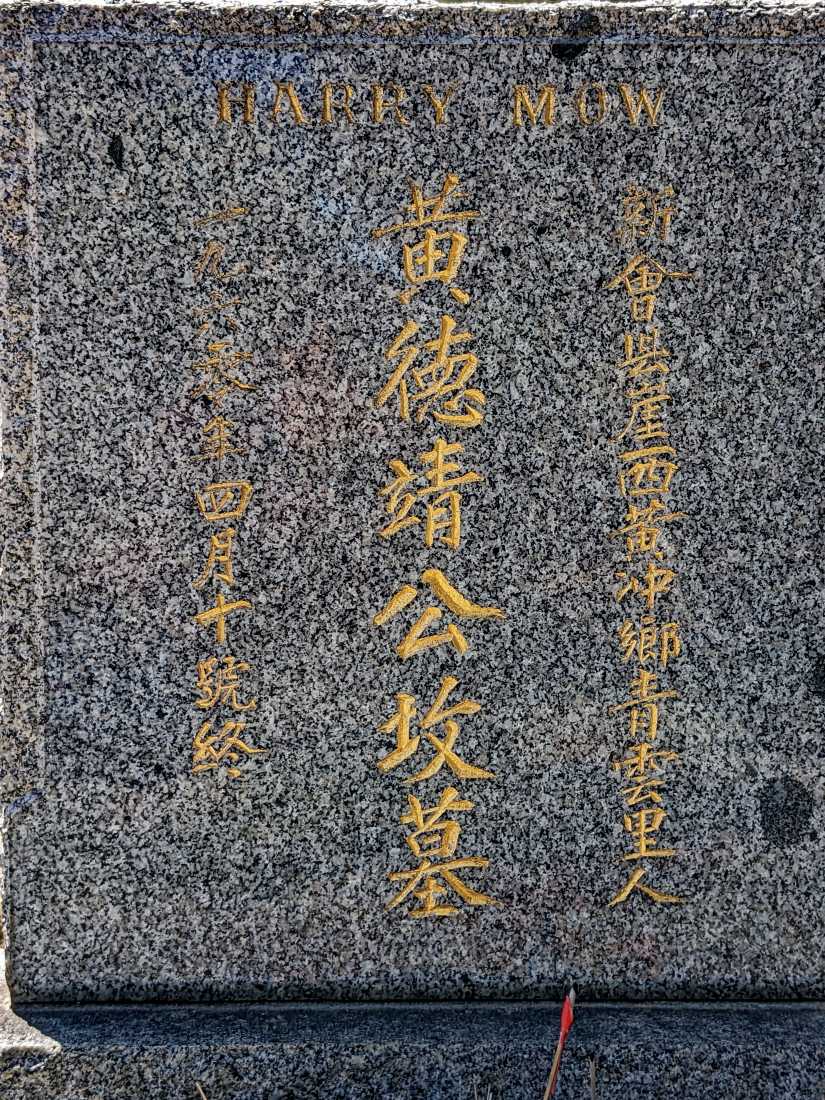 HARRY MOW
新會县崖西黃冲鄉青雲里人
黃德靖公坟墓
一九六零年四月十號終